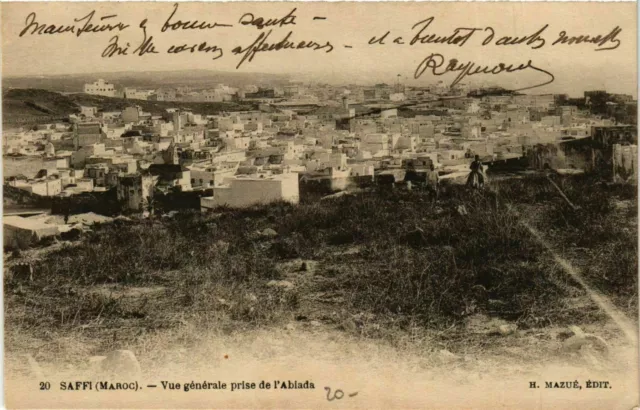 Maintiens toujours bonne santé –
Mille caresses affectueuses – et à bientôt d'autres nouvelles
Raymond
20 SAFFI (MAROC). — Vue générale prise de l'Abiada
20-
H. MAZUÉ, ÉDIT.